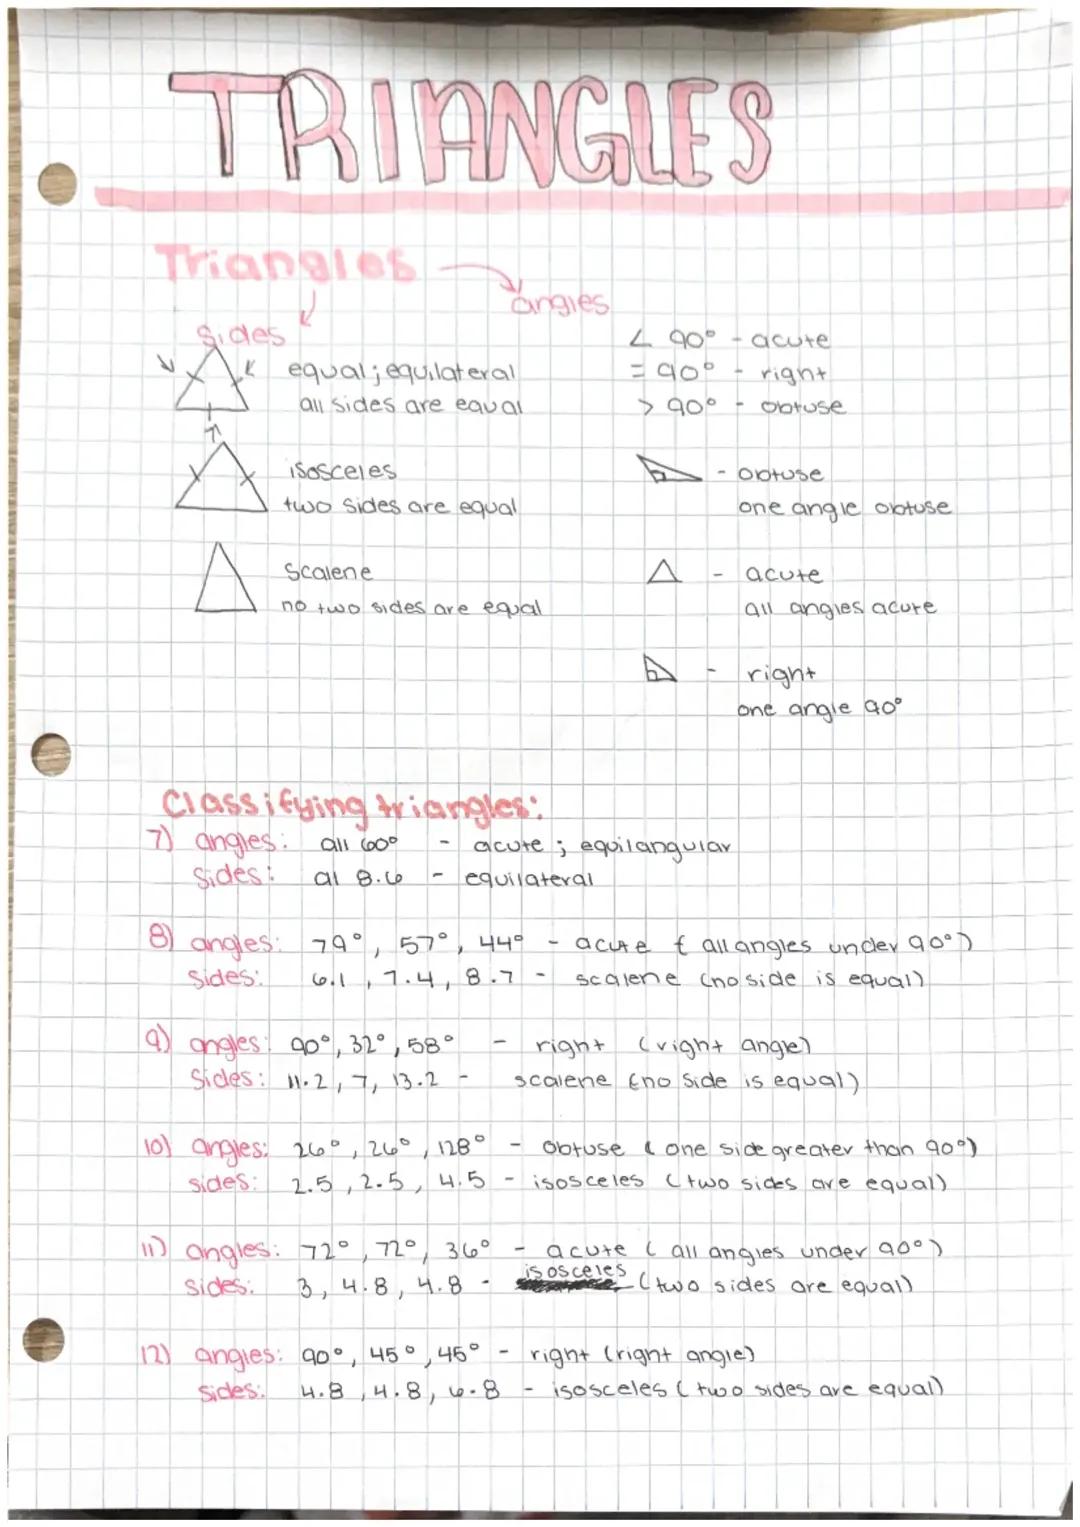 TRIANGLES
Triangles
angles
Sides
< 90° - acute
equal; equilateral
= 90° - right
all sides are equal
> 90° - obtuse
isosceles
- obtuse
two sides are equal
one angle obtuse
Scalene
- acute
no two sides are equal
all angles acute
- right
one angle 90°
Classifying triangles:
7) angles: all 60° - acute; equilangular
Sides: al 8.6 - equilateral
8) angles: 79°, 57°, 44° - acute (all angles under 90°)
Sides: 6.1, 7.4, 8.7 - scalene (no side is equal)
9) angles: 90°, 32°, 58° - right (right angle)
Sides: 11.2, 7, 13.2 - scalene (no side is equal)
10) angles: 26°, 26°, 128° - obtuse (one side greater than 90°)
sides: 2.5, 2.5, 4.5 - isosceles (two sides are equal)
11) angles: 72°, 72°, 36° - acute (all angles under 90°)
sides: 3, 4.8, 4.8 - isosceles (two sides are equal)
12) angles: 90°, 45°, 45° - right (right angle)
sides: 4.8, 4.8, 6.8 - isosceles (two sides are equal)